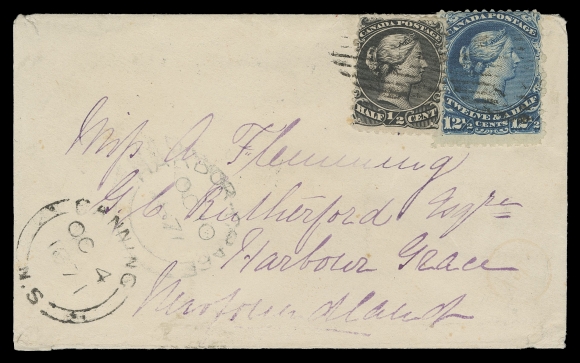 CANADA POSTAGE
HALF 1/2 CENT
CANADA POSTAGE
TWELVE & A HALF
12½ CENTS 12½
Miss A Flemming
G. C. Rutherford Esqre
Harbour Grace
Newfoundland
HARBOR GRACE
OC 10
71
CANNING
OC 4
1871
N.S.